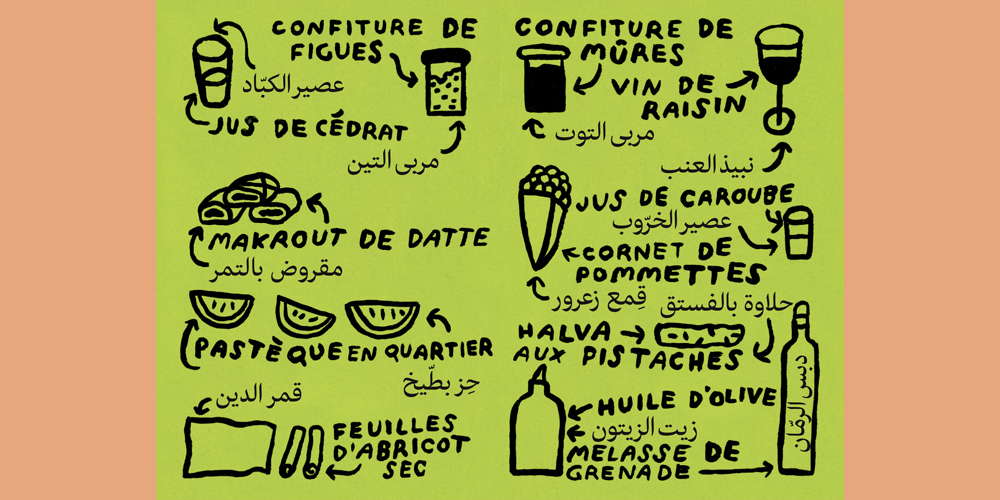 CONFITURE DE
FIGUES
عصير الكبّاد
JUS DE CÉDRAT
مربى التين
MAKROUT DE DATTE
مقروض بالتمر
PASTÈQUE EN QUARTIER
حِز بطّيخ
قمر الدين
FEUILLES
D'ABRICOT
SEC
CONFITURE DE
MÛRES
VIN DE
RAISIN
مربى التوت
نبيذ العنب
JUS DE CAROUBE
عصير الخرّوب
CORNET DE
POMMETTES
قِمع زعرور
حلاوة بالفستق
HALVA
AUX PISTACHES
HUILE D'OLIVE
زيت الزيتون
MELASSE DE
GRENADE
دبس الرمّان